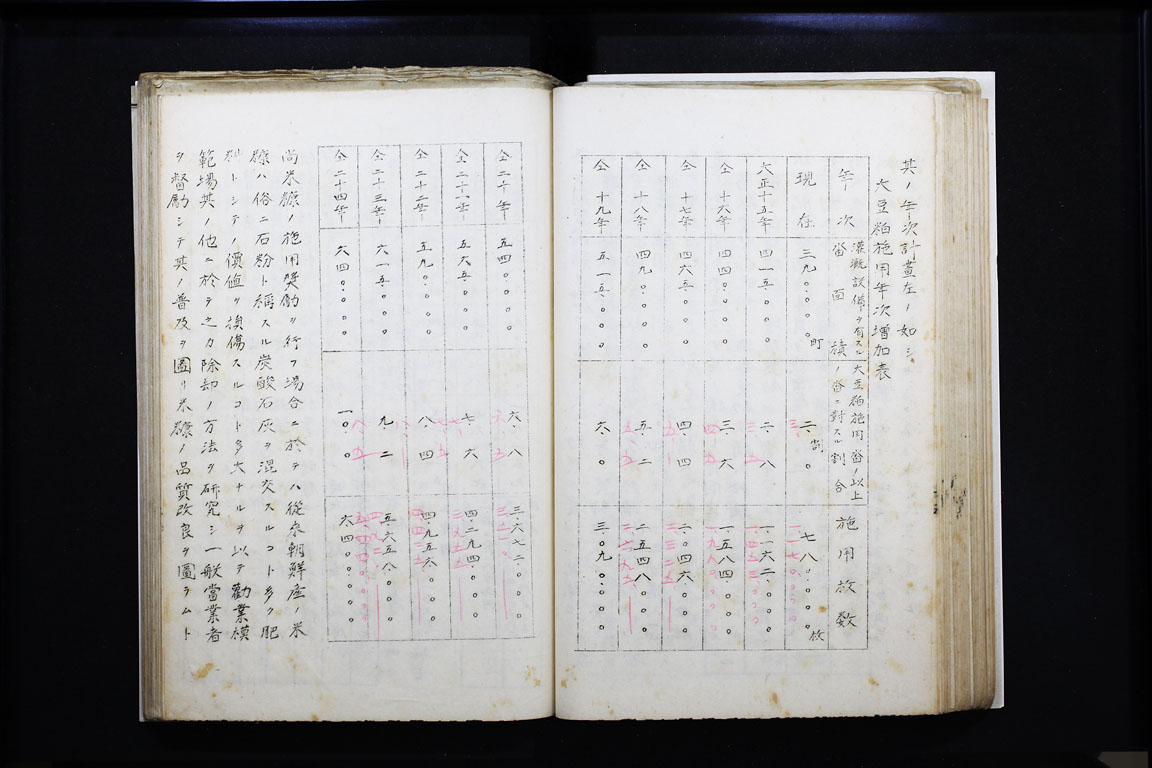 其ノ年次計畫左ノ如シ
大豆粕施用年次増加表
年次 灌漑設備ヲ有スル畓面積 大豆粕施用畓ノ以上ノ畓ニ對スル割合 施用枚数
現在 三九〇・〇〇〇町 二・〇割 七八〇・〇〇〇枚
大正十五年 四一五・〇〇〇 二・八 一・一六二・〇〇〇
仝十六年 四四〇・〇〇〇 三・六 一・五八四・〇〇〇
仝十七年 四六五・〇〇〇 四・四 二・〇四六・〇〇〇
仝十八年 四九〇・〇〇〇 五・二 二・五四八・〇〇〇
仝十九年 五一五・〇〇〇 六・〇 三・〇九〇・〇〇〇
仝二十年 五四〇・〇〇〇 六・八 三・六七二・〇〇〇
仝二十一年 五六五・〇〇〇 七・六 四・二九四・〇〇〇
仝二十二年 五九〇・〇〇〇 八・四 四・九五六・〇〇〇
仝二十三年 六一五・〇〇〇 九・二 五・六五八・〇〇〇
仝二十四年 六四〇・〇〇〇 一〇・〇 六・四〇〇・〇〇〇
尚米糠ノ施用奬勵ヲ行フ場合ニ於テハ從來朝鮮産ノ米
糠ハ俗ニ石粉ト稱スル炭酸石灰ヲ混交スルコト多ク肥
料トシテノ價値ヲ損傷スルコト多大ナルヲ以テ勸業模
範場其ノ他ニ於テ之カ除却ノ方法ヲ研究シ一般當業者
ヲ督勵シテ其ノ普及ヲ圖リ米糠ノ品質改良ヲ圖ラムト